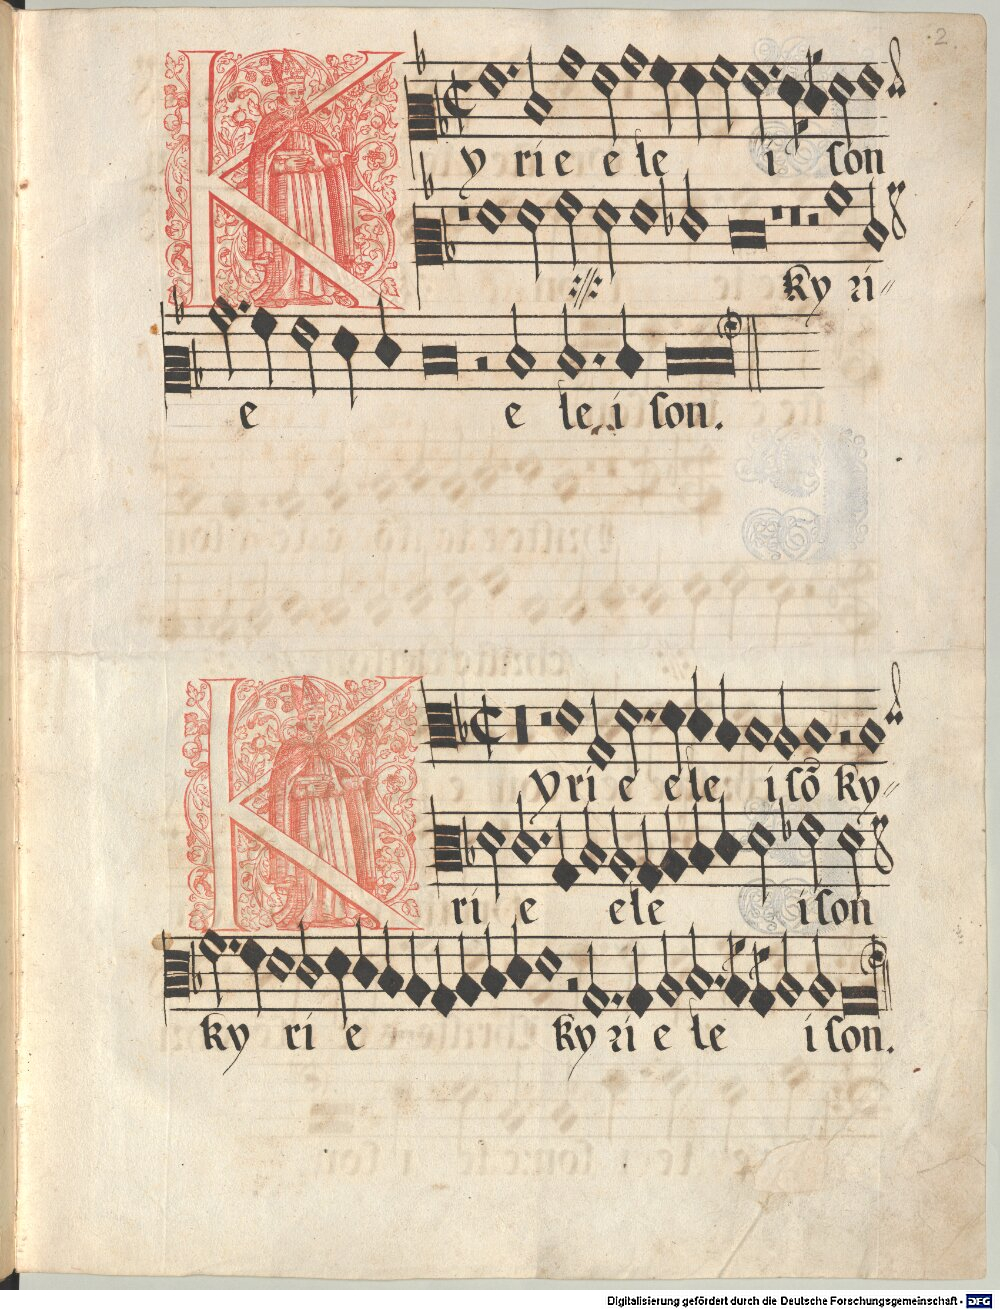 2
Kyrie e le i son
Kyri
e e le i son.
Kyrie ele i sõ ky
rie ele ison
ky ri e kyrie le i son.
Digitalisierung gefördert durch die Deutsche Forschungsgemeinschaft - DFG